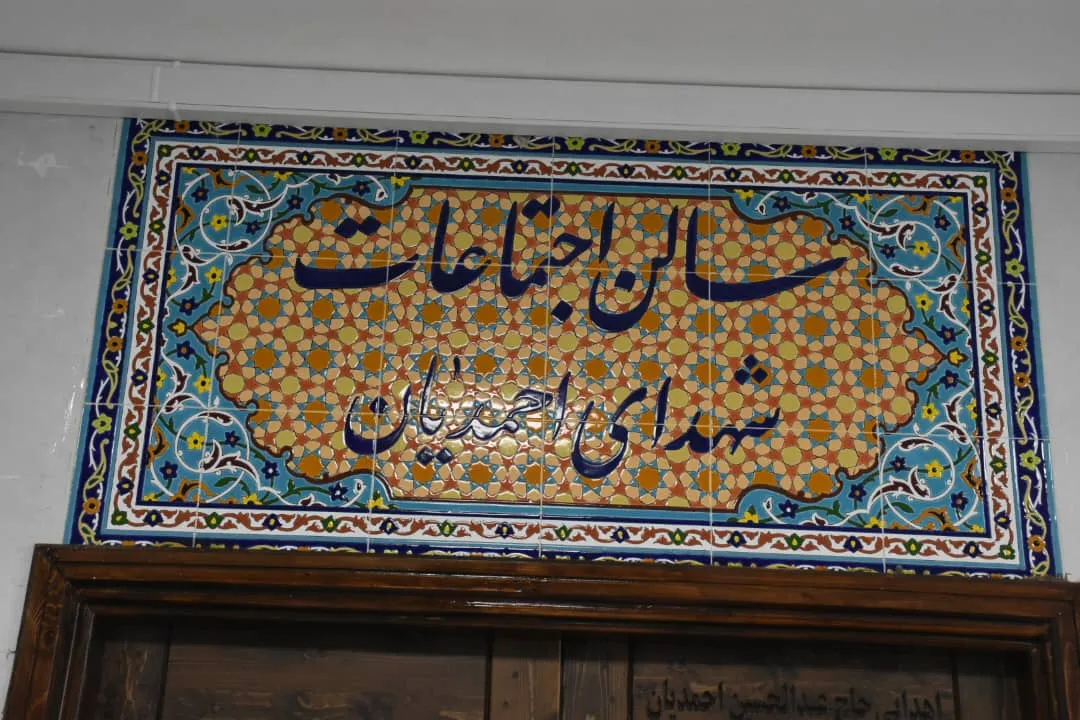 سالن اجتماعات
شهدای احمدیان
اهدایی حاج عبدالحسین احمدیان